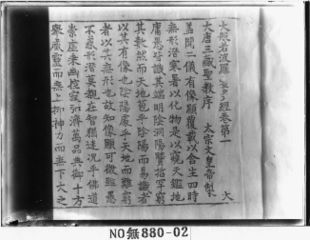 大般若波羅蜜多經卷第一　大
大唐三藏聖教序　太宗文皇帝製
蓋聞二儀有像顯覆載以含生四時
無形潛寒暑以化物是以窺天鑑地
庸愚皆識其端明陰洞陽賢哲罕窮
其數然而天地苞乎陰陽而易識者
以其有像也陰陽處乎天地而難窮
者以其無形也故知像顯可徵雖愚
不惑形潛莫覩在智猶迷況乎佛道
崇虛乘幽控寂弘濟萬品典御十方
舉威靈而無上抑神力而無下大之
NO無880-02